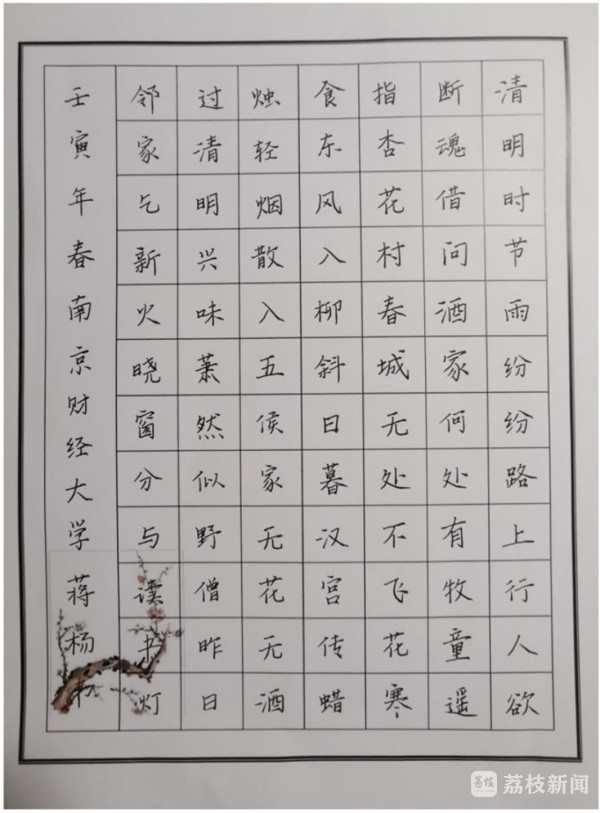 清明时节雨纷纷路上行人欲
断魂借问酒家何处有牧童遥
指杏花村春城无处不飞花寒
食东风入柳斜日暮汉宫传蜡
烛轻烟散入五侯家无花无酒
过清明兴味萧然似野僧昨日
邻家乞新火晓窗分与读书灯
壬寅年春南京财经大学蒋杨
荔枝新闻